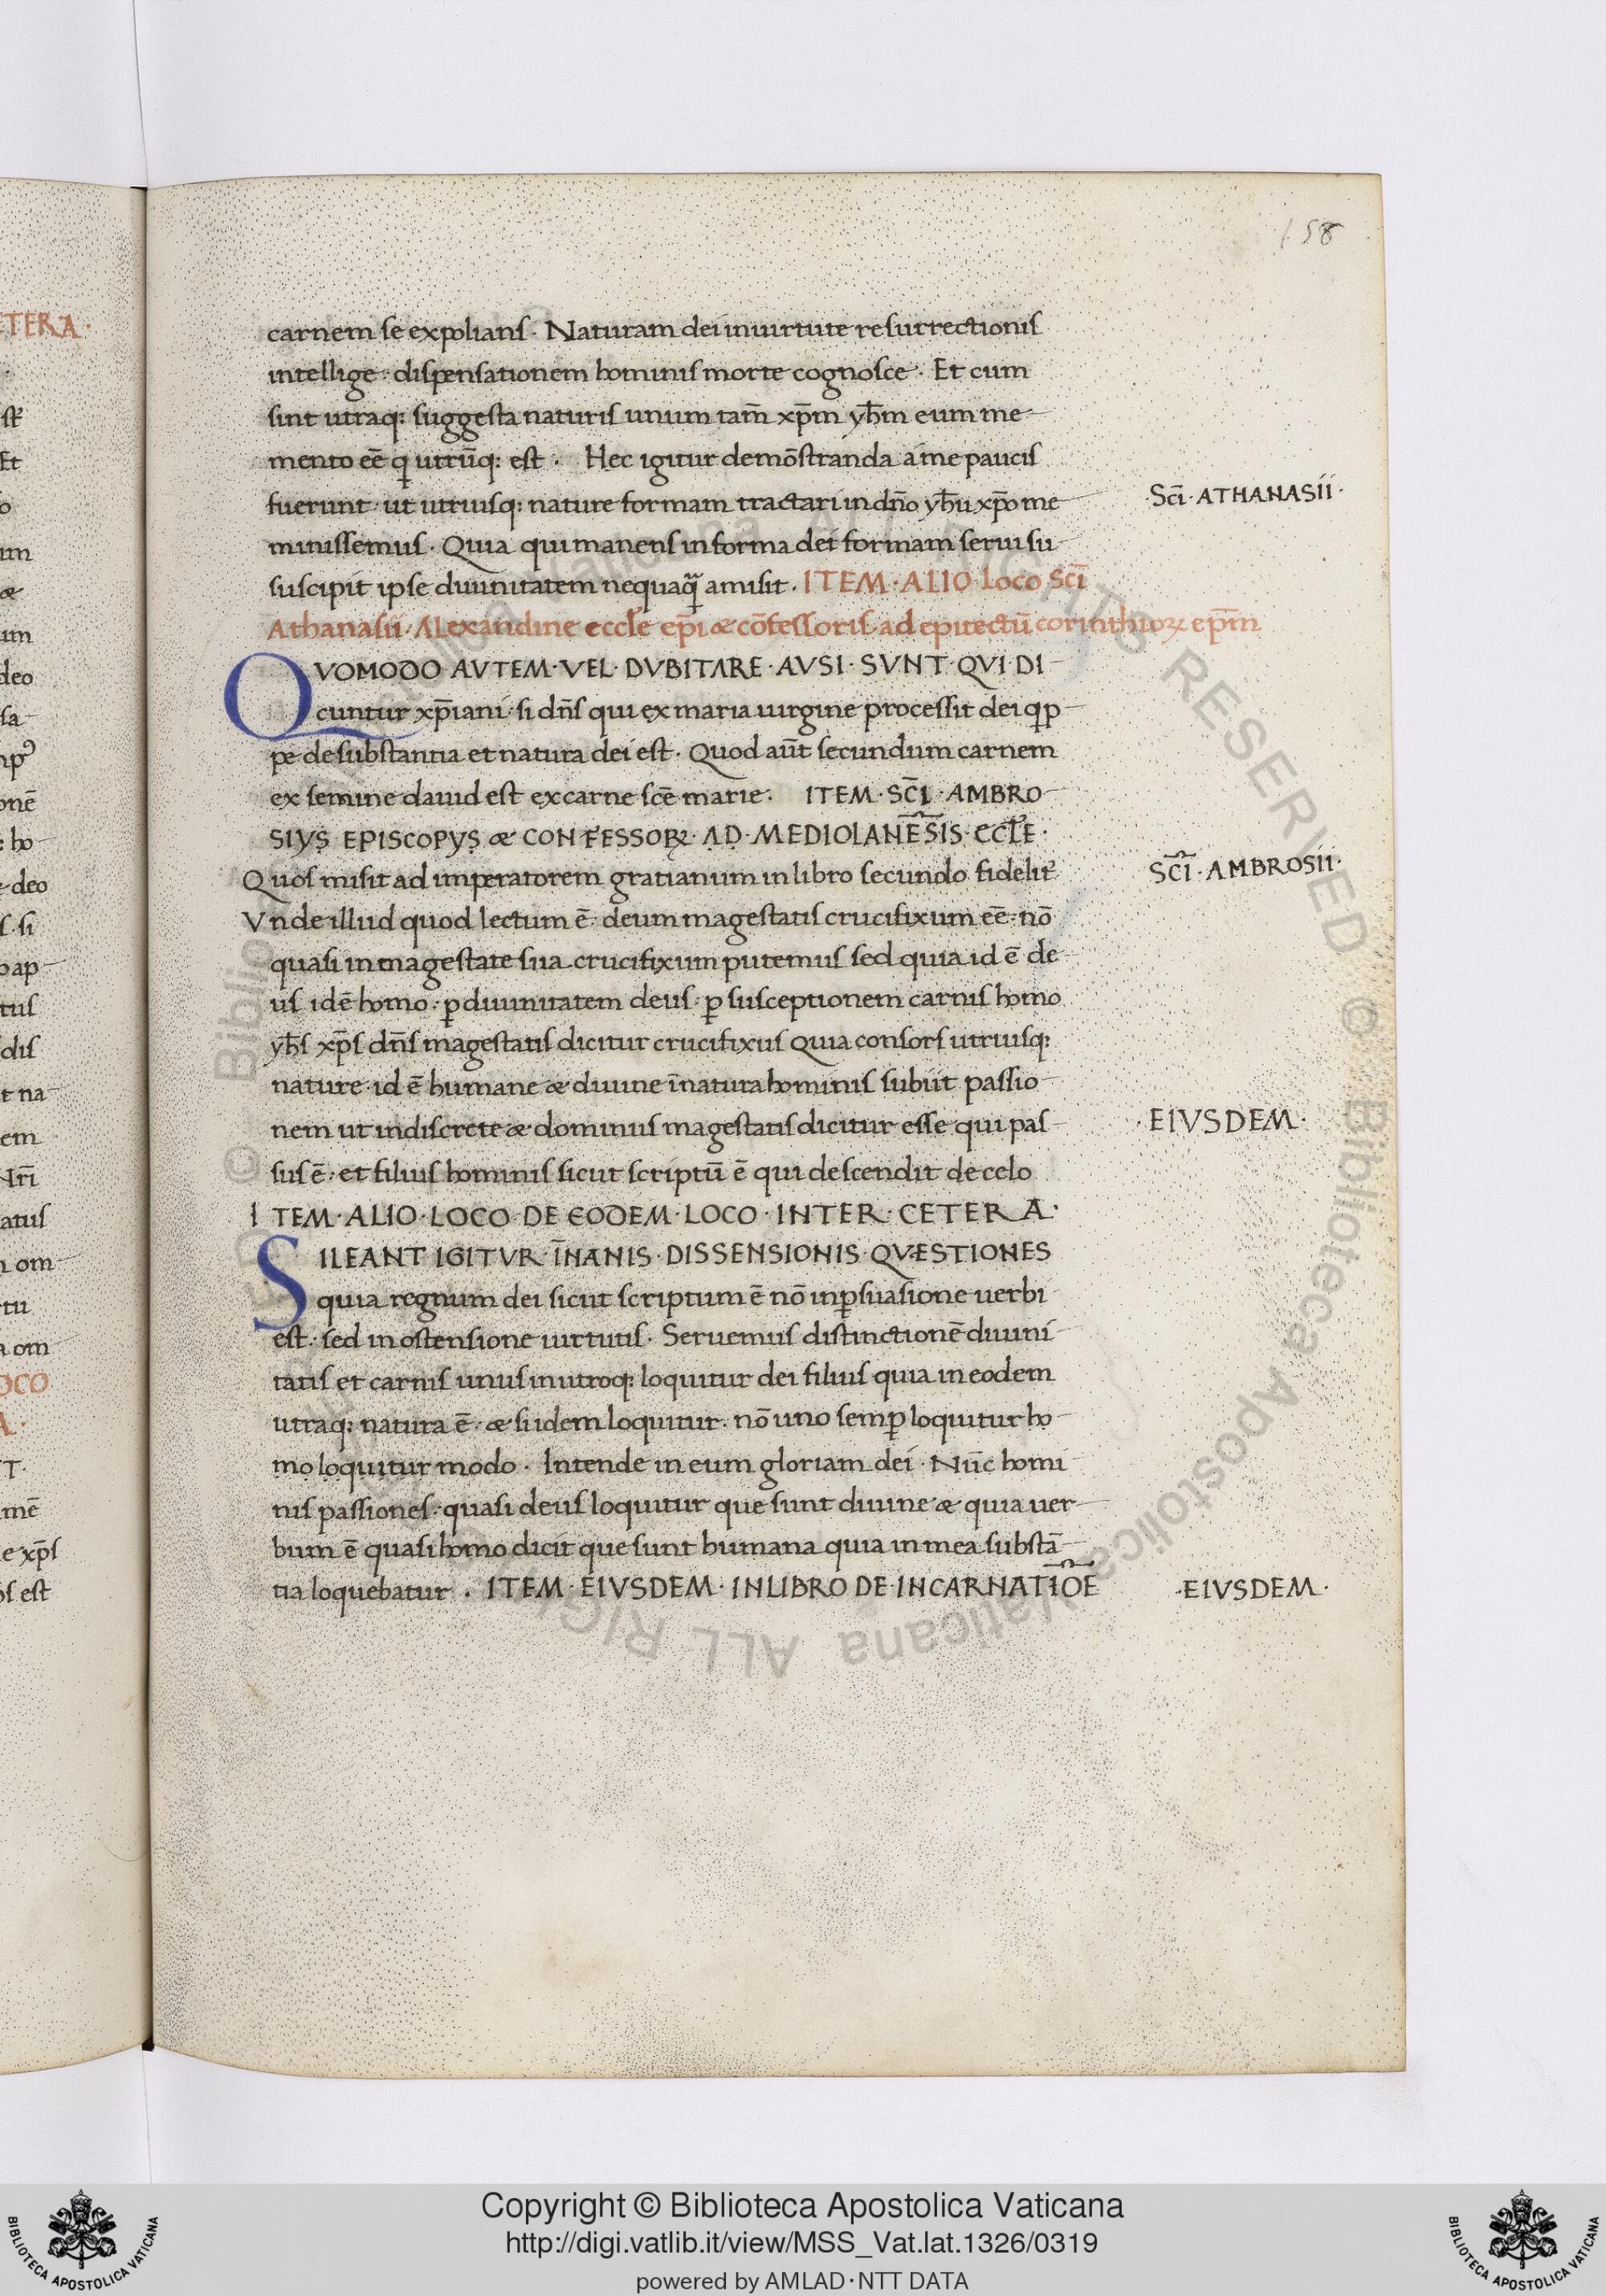 158
carnem se expolians · Naturam dei in uirtute resurrectionis
intellige · dispensationem hominis morte cognosce · Et cum
sint utraq: suggesta naturis unum tam̄ xp̄m yħm eum me-
mento eē q utrūq: est · Hec igitur demōstranda a me paucis
fuerunt · ut utriusq: nature formam tractari in dn̄o yħu xp̄o me-
·Sc̄i· ATHANASII·
minissemus · Quia qui manens in forma dei formam serui su-
suscipit ipse diuinitatem nequaq̄ amisit · ITEM · ALIO Loco Sc̄i
Athanasii · Alexandine eccƚe ep̄i & cōfessoris ad epitectū corinthioꝝ ep̄m
QVOMODO AVTEM · VEL · DVBITARE · AVSI · SVNT · QVI DI-
cuntur xp̄iani · si dn̄s qui ex maria uirgine processit dei qp-
pe de substantia et natura dei est · Quod aūt secundum carnem
ex semine dauid est ex carne scē marie · ITEM · SC̄I · AMBRO-
SIVS EPISCOPVS & CONFESSOꝜ · AD · MEDIOLANĒSIS · ECCƚE ·
Quos misit ad imperatorem gratianum in libro secundo fideliť
SC̄I · AMBROSII ·
Vnde illud quod lectum ē deum magestatis crucifixum eē · nō
quasi in magestate sua crucifixum putemus sed quia id ē de-
us idē homo · ꝑ diuinitatem deus · ꝑ susceptionem carnis homo
yħs xp̄s dn̄s magestatis dicitur crucifixus Quia consors utriusq:
nature · id ē humane & diuine īnatura hominis subiit passio-
nem ut indiscrete & dominus magestatis dicitur esse qui pas-
· EIVSDEM ·
sus ē · et filius hominis sicut scriptū ē qui descendit de celo
ITEM · ALIO · LOCO · DE EODEM · LOCO · INTER · CETERA ·
SILEANT IGITVR · ĪNANIS · DISSENSIONIS · QVÆSTIONES
quia regnum dei sicut scriptum ē nō inꝑsuasione uerbi
est · sed in ostensione uirtutis · Seruemus distinctionē diuini-
tatis et carnis unus in utroq: loquitur dei filius quia in eodem
utraq: natura ē · & si idem loquitur · nō uno semꝑ loquitur ho-
mo loquitur modo · Intende in eum gloriam dei · Nūc homi-
nis passiones · quasi deus loquitur que sunt diuine & quia uer-
bum ē quasi homo dicit que sunt humana quia in mea substā-
tia loquebatur · ITEM · EIVSDEM · IN LIBRO DE · INCARNATIŌE
·EIVSDEM·
Copyright © Biblioteca Apostolica Vaticana
http://digi.vatlib.it/view/MSS_Vat.lat.1326/0319
powered by AMLAD·NTT DATA